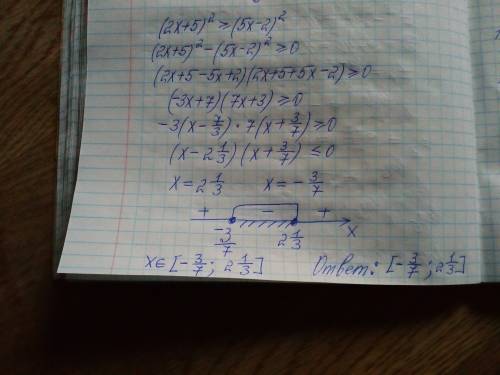 (2x+5)² ≥ (5x-2)²
(2x+5)² - (5x-2)² ≥ 0
(2x+5-5x+2)(2x+5+5x-2) ≥ 0
(-3x+7)(7x+3) ≥ 0
-3(x-7/3)·7(x+3/7) ≥ 0
(x-2 1/3)(x+3/7) ≤ 0
x=2 1/3 x=-3/7
+ - +
-3/7 2 1/3 x
x∈[-3/7; 2 1/3] Ответ: [-3/7; 2 1/3]